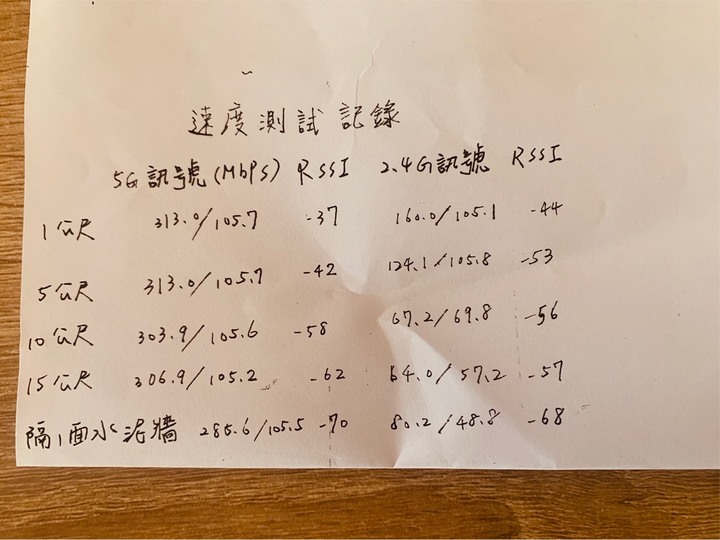 速度測試記錄
5G訊號(Mbps) RSSI 2.4G訊號 RSSI
1公尺 313.0/105.7 -37 160.0/105.1 -44
5公尺 313.0/105.7 -42 124.1/105.8 -53
10公尺 303.9/105.6 -58 67.2/69.8 -56
15公尺 306.9/105.2 -62 64.0/57.2 -57
隔1面水泥牆 285.6/105.5 -70 80.2/48.8 -68